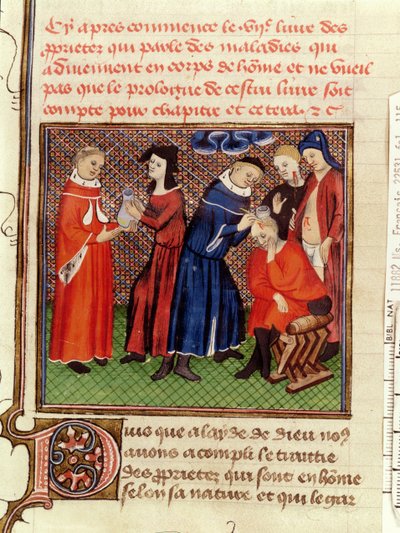 Cy apres commence le vije liure des
pprietez qui parle des maladies qui
aduiennent en corps de hôme et ne vueil
pas que le prologue de cestui liure soit
compte pour chapitre et cetera z c
Puis que a layde de dieu no9
auons acompli le traittie
des pprietez qui sont en hôme
selon sa nature et qui le gar
BIBL. NAT